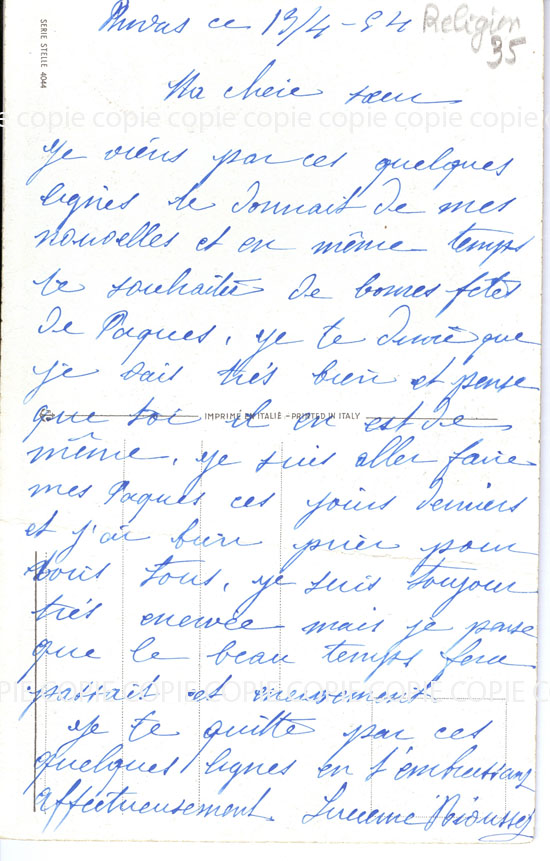 Privas ce 13/4-54 Religion
35
SERIE STELLE 4044
Ma chère sœur
copie copie copie copie copie copie
je viens par ces quelques
lignes te donnait de mes
nouvelles et en même temps
te souhaiter de bonnes fêtes
de Paques, je te dirai que
je vais très bien et pense
que toi il en est de
IMPRIMÉ EN ITALIE - PRINTED IN ITALY
même, je suis aller faire
mes Paques ces jours derniers
et j'ai bien prier pour
vous tous, je suis toujour
très enervée mais je pense
que le beau temps fera
COPIE COPIE COPIE COPIE COPIE COPIE
je te quitte par ces
quelques lignes en t'embrassant
affectueusement. Lucienne